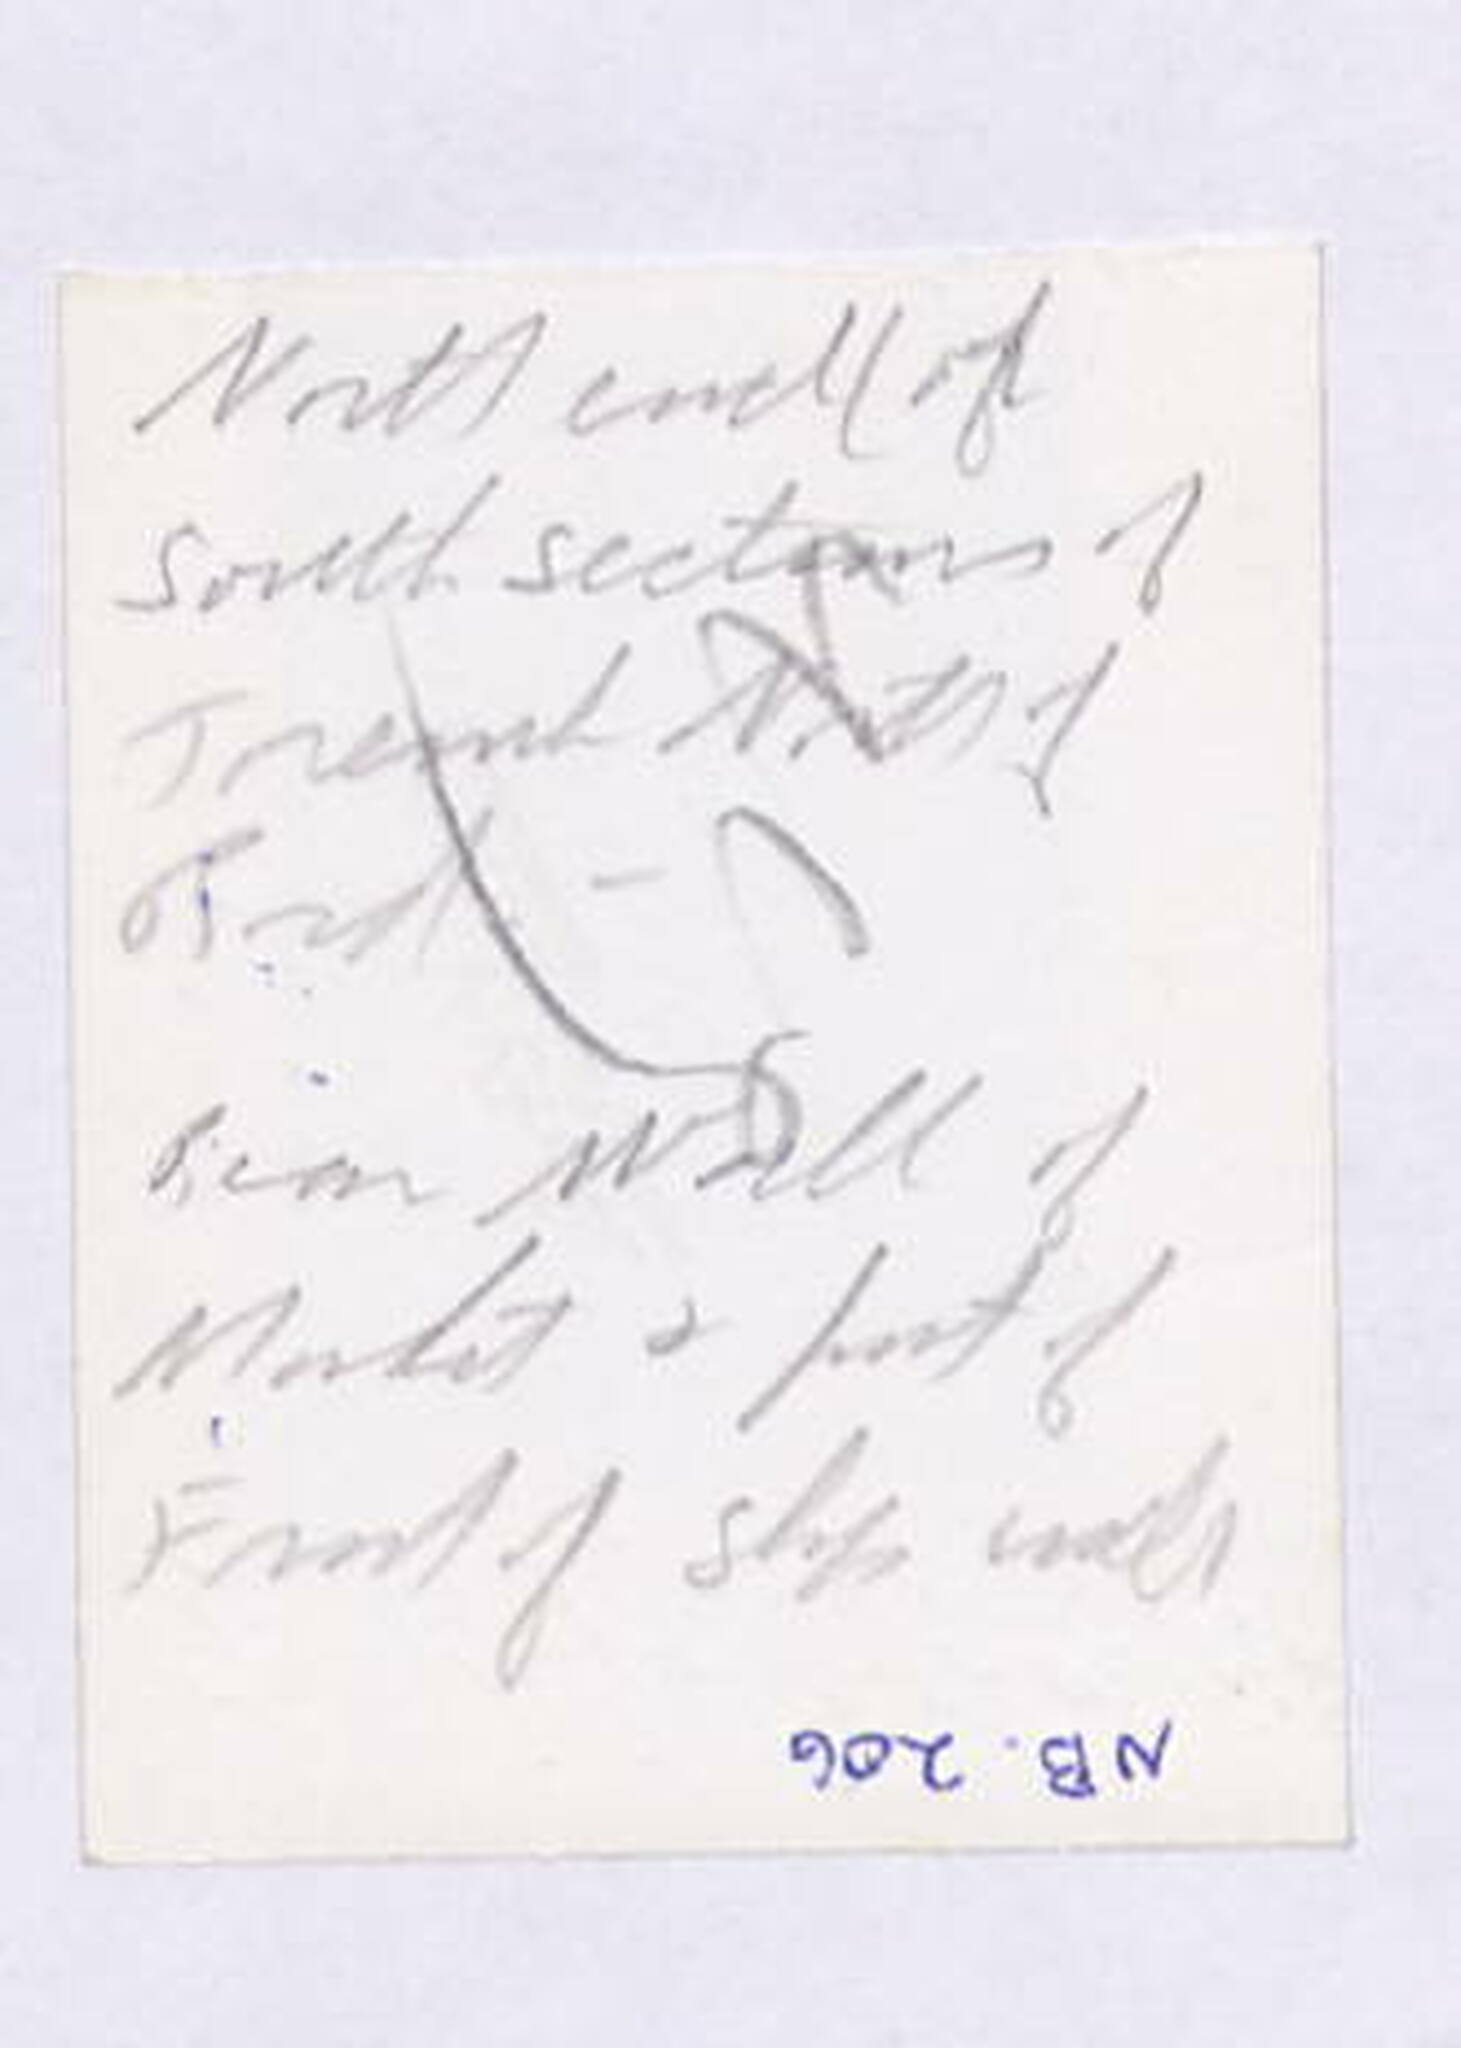 North end of
South sections of
Trench North of
Rear Wall of
Market & part of
Front of shops walls
NB. 206